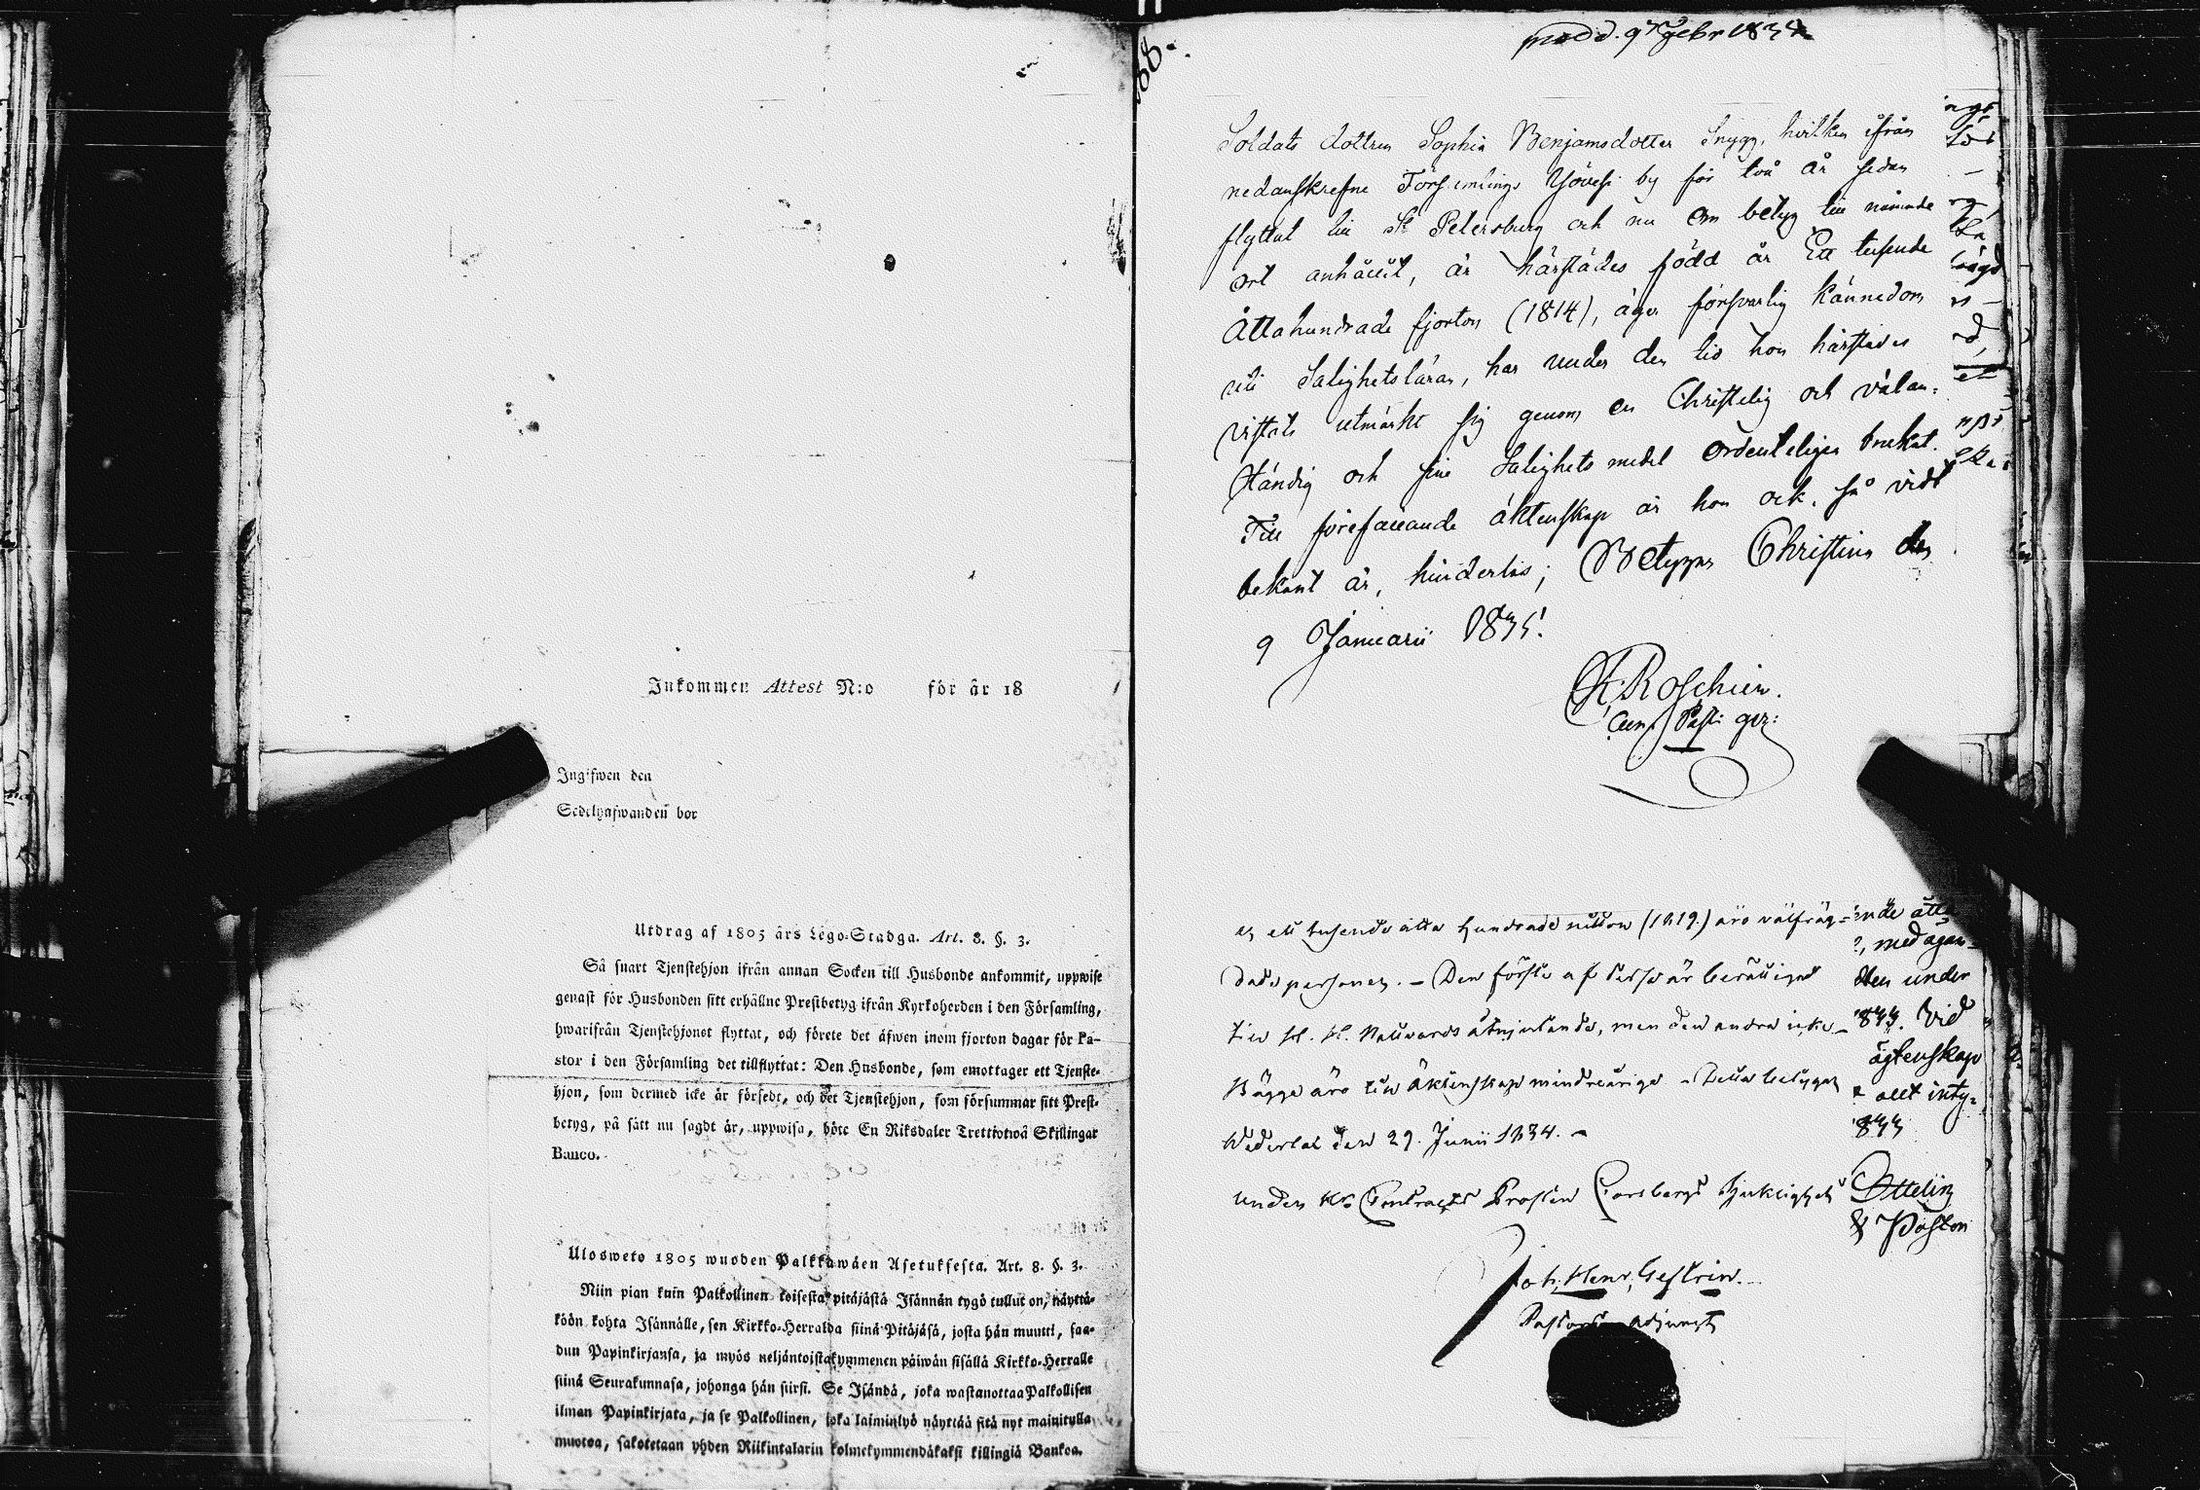 Inkommen Attest N:o för år 18
Ingifwen den
Sedelhafwanden bor
Utdrag af 1805 års Lego-Stadga. Art. 8. §. 3.
Så snart Tjenstehjon ifrån annan Socken till Husbonde ankommit, uppwise
genast för Husbonden sitt erhållne Prestbetyg ifrån Kyrkoherden i den Församling,
hwarifrån Tjenstehjonet flyttat, och förete det äfwen inom fjorton dagar för Pa-
stor i den Församling det tillflyttat: Den Husbonde, som emottager ett Tjenste-
hjon, som dermed icke är försedt, och det Tjenstehjon, som försummar sitt Prest-
betyg, på sätt nu sagdt är, uppwisa, böte En Riksdaler Trettiotwå Skillingar
Banco.
Ulosweto 1805 wuoden Palkkawäen Asetuksesta. Art. 8. §. 3.
Niin pian kuin Palkollinen toisesta pitäjästä Isännän tygö tullut on, näyttä-
köön kohta Isännälle, sen Kirkko-Herralda siinä Pitäjäsä, josta hän muutti, saa-
dun Papinkirjansa, ja myös neljäntoistakymmenen päiwän sisällä Kirkko-Herralle
siinä Seurakunnasa, johonga hän siirsi. Se Isändä, joka wastanottaa Palkollisen
ilman Papinkirjata, ja se Palkollinen, joka laiminlyö näyttää sitä nyt mainitulla
muotoa, sakotetaan yhden Riikintalarin kolmekymmendäkaksi killingiä Bankoa.
68.
Soldats dottren Sophia Benjamsdotter Snygg, hvilken ifrån
nedanskrefne Församlings by för två år sedan
flyttat till St Petersburg och nu om betyg till nämnde
ort anhållit, är härstädes född år Ett tusende
Åttahundrade fjorton (1814), äger försvarlig kännedom
uti Salighetsläran, har under den tid hon härstädes
vistats utmärkt sig genom en Christelig och välan-
ständig och sine Salighets medel ordenteligen brukat.
Till förefallande äktenskap är hon ock, så vidt
bekant är, hinderlös; Betygar Christina den
9 Januarii 1835.
K. Roschier.
Past:
et tusende åtta hundrade nitton (1819.) äro välfräg-
dade personer. - Den förste af dessa är berättigad
till H. H. Nattvards åtnjutande, men den andra icke -
Bägge äro till Äktenskap mindreårige - Detta betygar
Wederlax den 29. Junii 1834. -
under Hr Contracts Prosten Forsbergs sjuklighet
Joh. Henr. Gestrin.
Pastors Adjunct
med ägan-
den under
1833. Vid
ägtenskap
allt inty-
1833
Ottelin
Paston